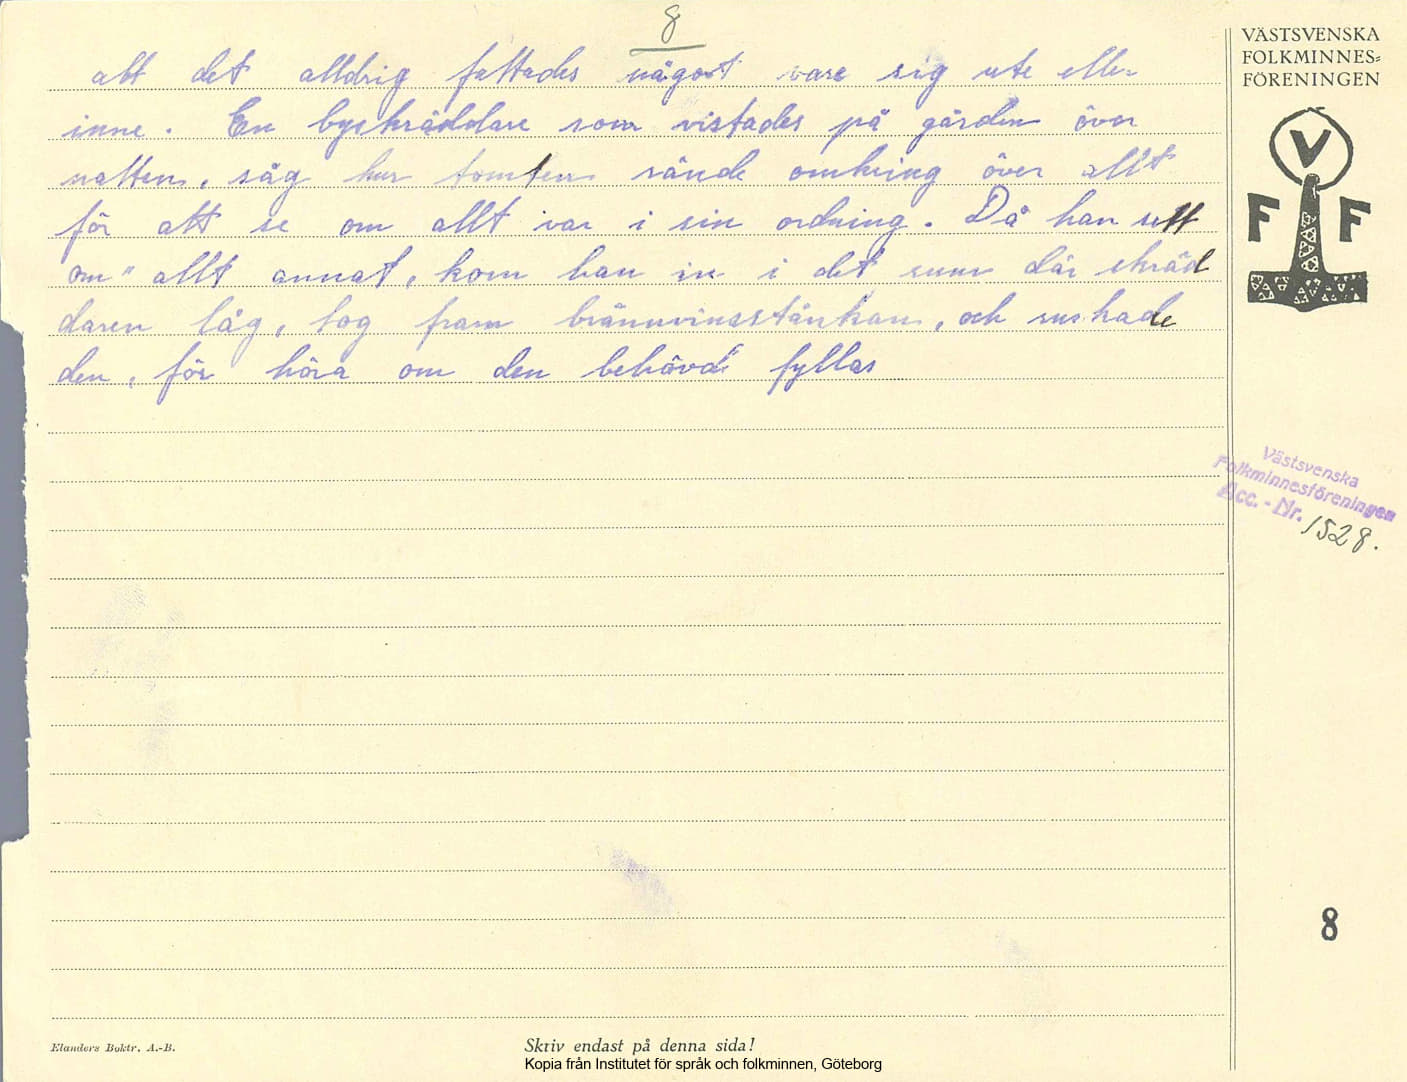 8
VÄSTSVENSKA
FOLKMINNES-
FÖRENINGEN
V
F F
att det alldrig fattades något vare sig ute eller
inne. En byskräddare som vistades på gården över
natten, såg hur tomten rände omkring över allt
för att se om allt var i sin ordning. Då han sett
om" allt annat, kom han in i det rum där skräd
daren låg, tog fram brännvinsstänkan, och ruskade
den, för höra om den behövde fyllas
Västsvenska
Folkminnesföreningen
Acc.-Nr. 1528.
8
Elanders Boktr. A.-B.
Skriv endast på denna sida!
Kopia från Institutet för språk och folkminnen, Göteborg